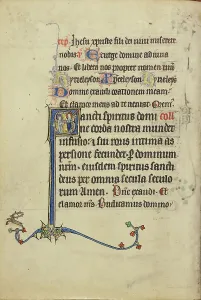 Jhesu xpriste fili dei vivi miserere
nobis. Exurge domine adiuva
nos. Et libera nos propter nomen
Kyrieleyson Xpeleyson Kyrieleyson
Domine exaudi orationem meam
Et clamor meus ad te veniat. Oremus
Sancti spiritus domine
corda nostra mundet
infusio et sui roris intima as
persione fecundet. P dominum
num. eiusdem spiritus sancti
deus per omnia secula seculo
rum Amen. Dñe exaudi. Et
clamor mꝰ. Benedicamus domino.